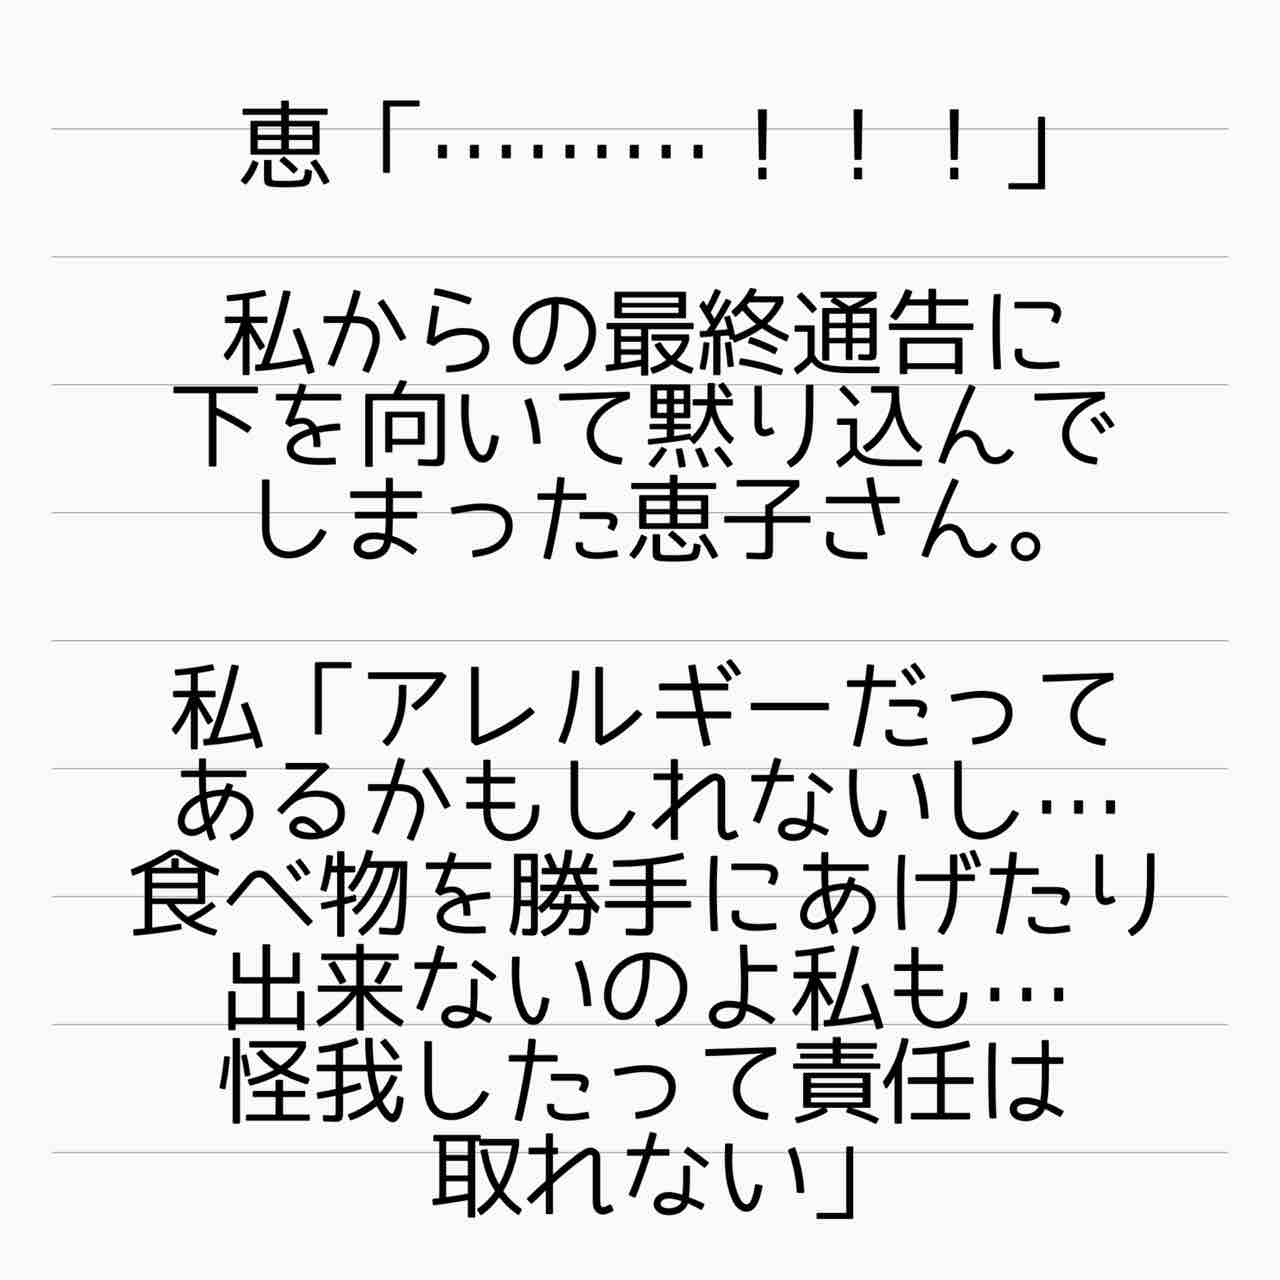 恵「………！！！」
私からの最終通告に
下を向いて黙り込んで
しまった恵子さん。
私「アレルギーだって
あるかもしれないし…
食べ物を勝手にあげたり
出来ないのよ私も…
怪我したって責任は
取れない」